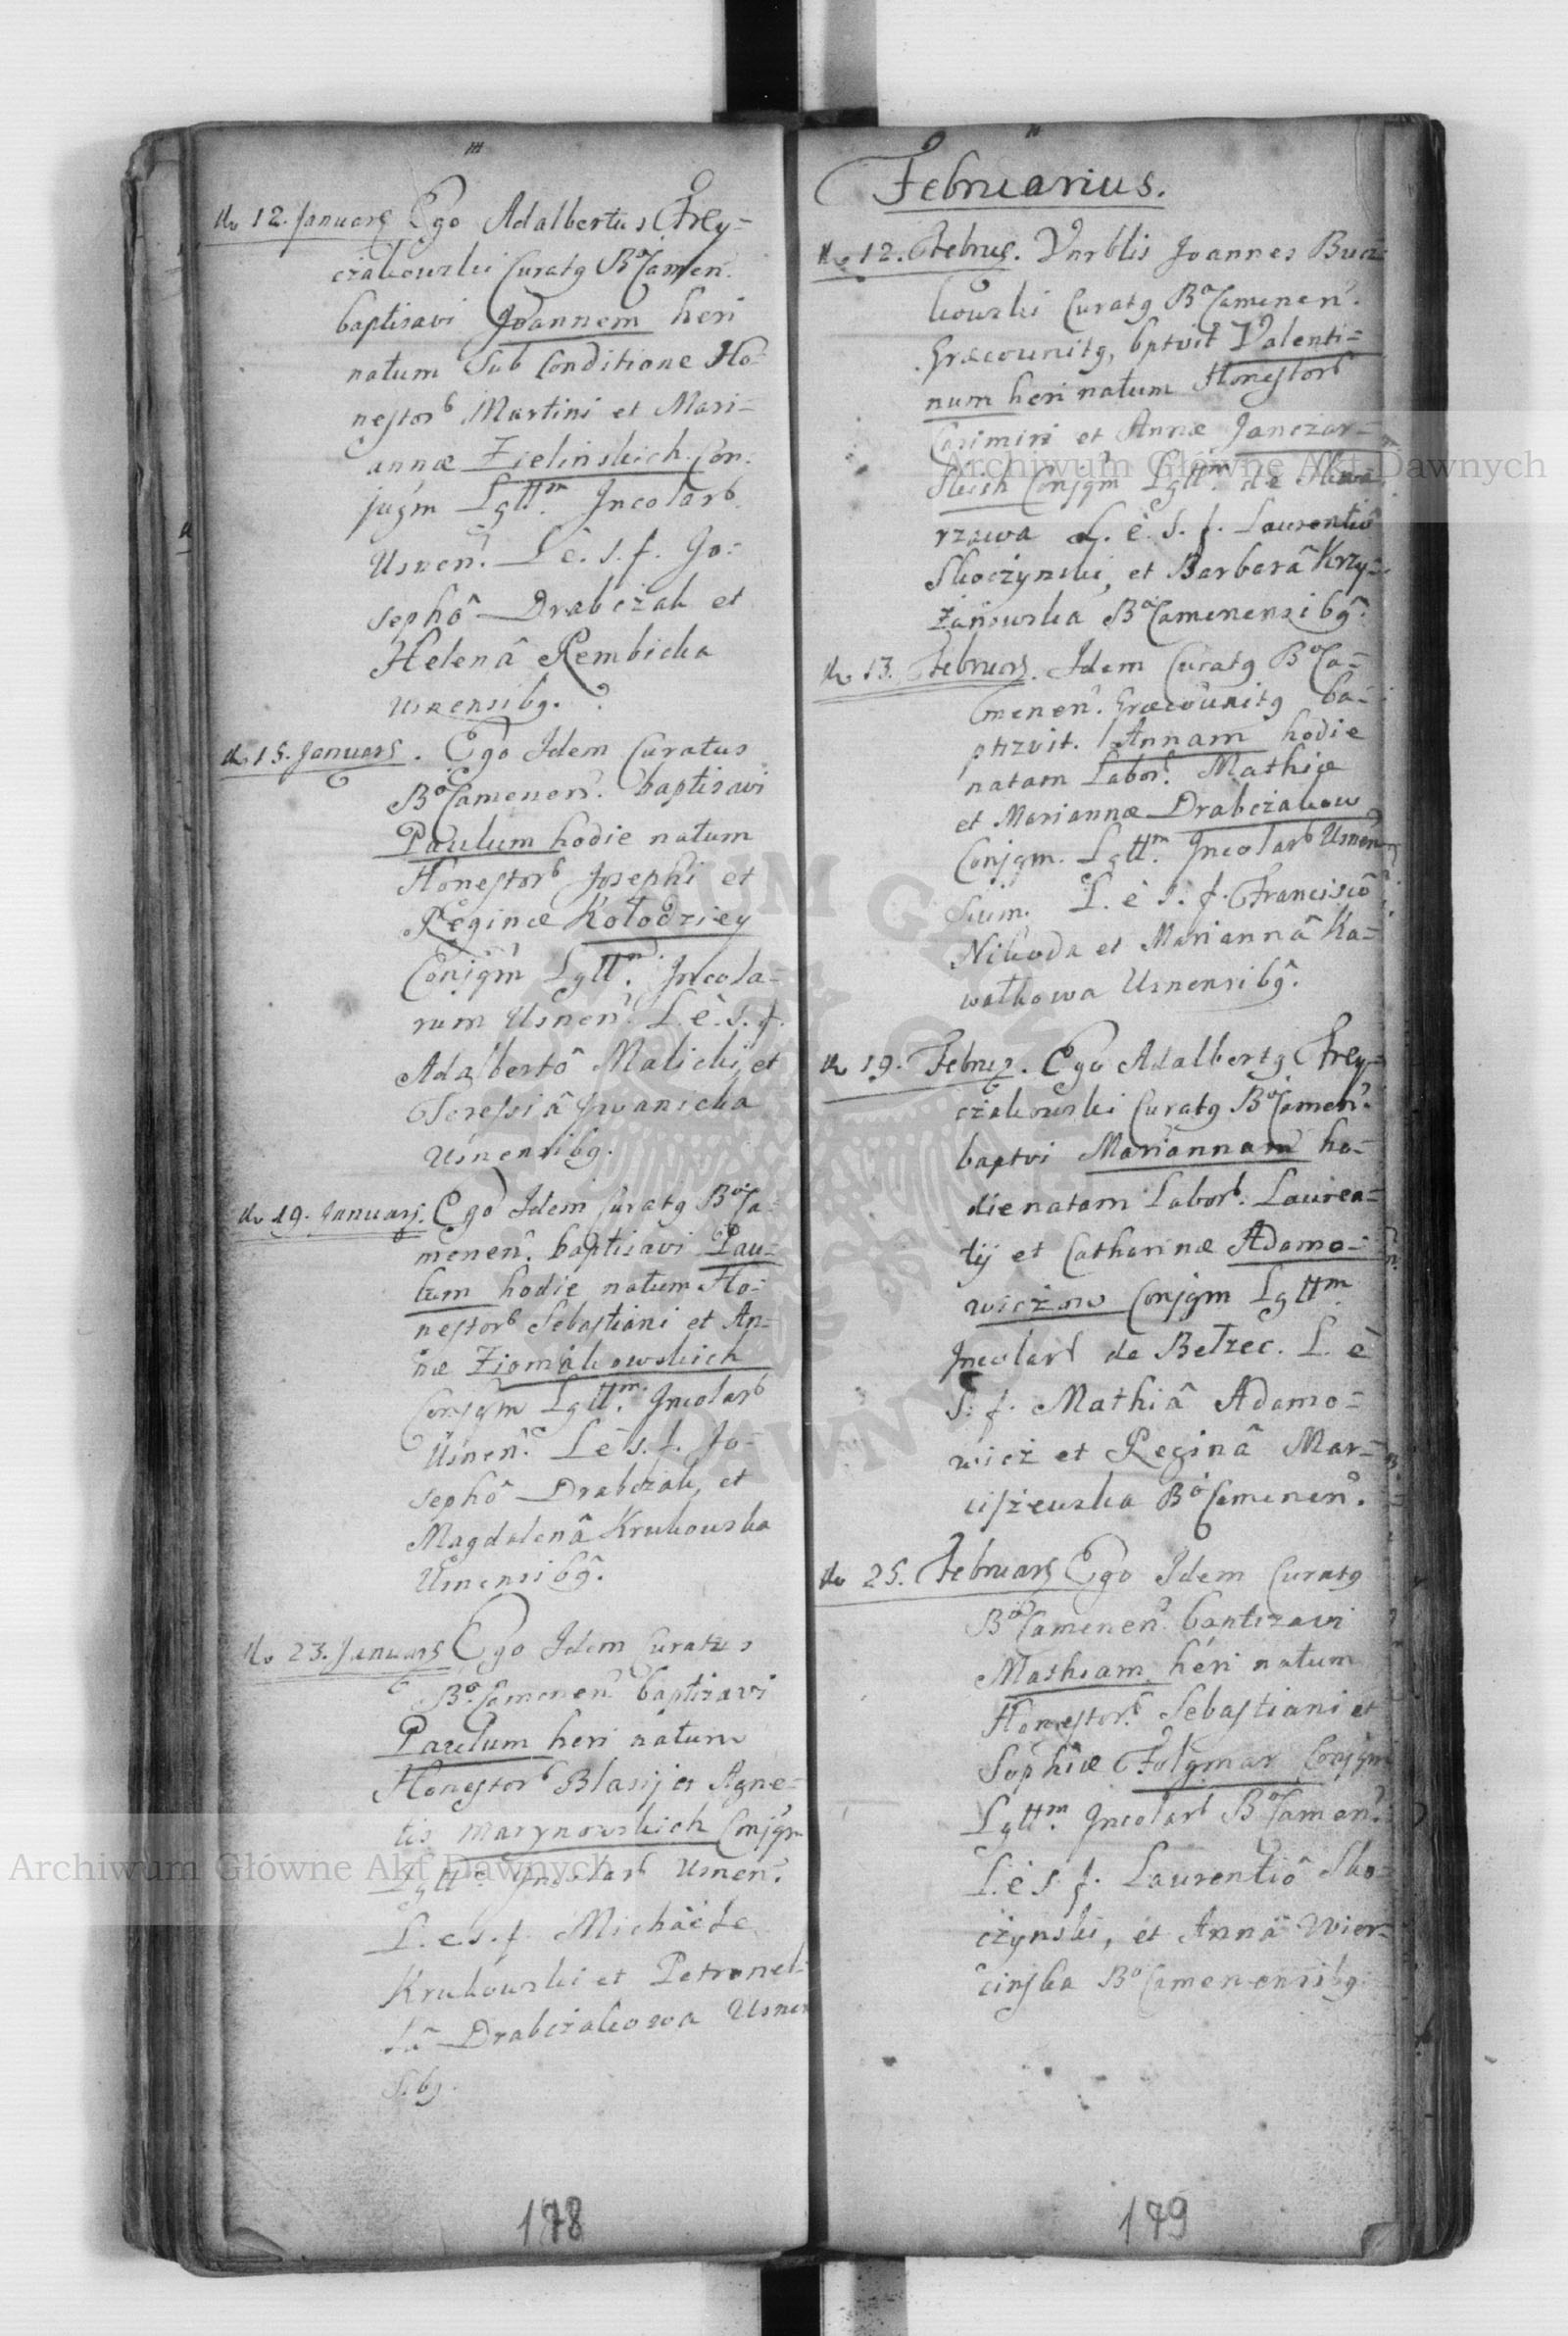 do 12. Januarij Ego Adalbertus Frey=
czakowski Curatq Bo Camen.
baptisavi Joannem heri
natum Sub Conditione Ho=
nestorb Martini et Mari=
annæ Zielinskich Con=
jugm Lgttm. Incolarb
Usnen. L. è. s. f. Jo=
sephô Drabczak et
Helenâ Rembicka
Usnensibq.
do 15. Januarij. Ego Idem Curatus
Bo Camenen. baptisavi
Paulum hodie natum
Honestorb Josephi et
Reginæ Kołodziey
Conjgm Lgttm. Incola=
rum Usnen. L. è. s. f.
Adalbertô Malicki, et
Teressiâ Iwanicka
Usnensibq.
do 19. Januarij. Ego Idem Curatq Bo Ca=
menen. baptisavi Pau=
lum hodie natum Ho=
nestorb Sebastiani et An=
næ Ziomakowskich
Conjgm Lgttm. Incolarb
Usnen. L è s. f. Jo=
sephô Drabczak, et
Magdalenâ Krukowska
Usnensibq.
do 23. Januarij Ego Idem Curatus
Bo. Camenen baptisavi
Paulum heri natum
Honestorb Blasij et Agne=
tis Marynowskich Conjgm
Lgtt. Incolarb Usnen.
L. e s. f. Michaële
Krukowski et Petronel=
lâ Drabczakowa Usnen
sibq.
178
Februarius.
do 12. Februs. Vnrblis Joannes Bucz=
kowski Curatq Bo Camenen.
Græcounitq, bptvit Valenti=
num heri natum Honestorb
Casimiri et Annæ Janczar=
skich Conjgm Lgttm. de
rzawa L. è. s. f. Laurentiô
Skoczynski, et Barbarâ Krzy=
żanowska Bo Camenensibq.
do 13. Februarij. Idem Curatq Bo Ca=
menen. Græcounitq ba=
ptizvit. Annam hodie
natam Labor. Mathiæ
et Mariannæ Drabczakow
Conjgm. Lgttm. Incolarb Usnen
sium. L. è s. f. Franciscô
Nikoda et Mariannâ Ka=
wałkowa Usnensibq.
do 19. Februs. Ego Adalbertq Frey=
czakowski Curatq Bo Camen.
baptvi Mariannam ho=
die natam Laborb. Lauren=
tij et Catharinæ Adamo=
wiczow Conjgm Lgttm
Incolarb de Bełzec. L. è
s. f. Mathiâ Adamo=
wicz et Reginâ Mar=
ciszewska Bo Camenen.
do 25. Februarij Ego Idem Curatq
Bo Camenen. baptizavi
Mathiam heri natum
Honestorb. Sebastiani et
Sophiæ Folgmar Conjgm
Lgttm. Incolarb Bo Camen.
L. è s. f. Laurentiô Sko=
czynski, et Annâ Wier=
cinska Bo Camenensibq.
179
Archiwum Główne Akt Dawnych
Archiwum Główne Akt Dawnych